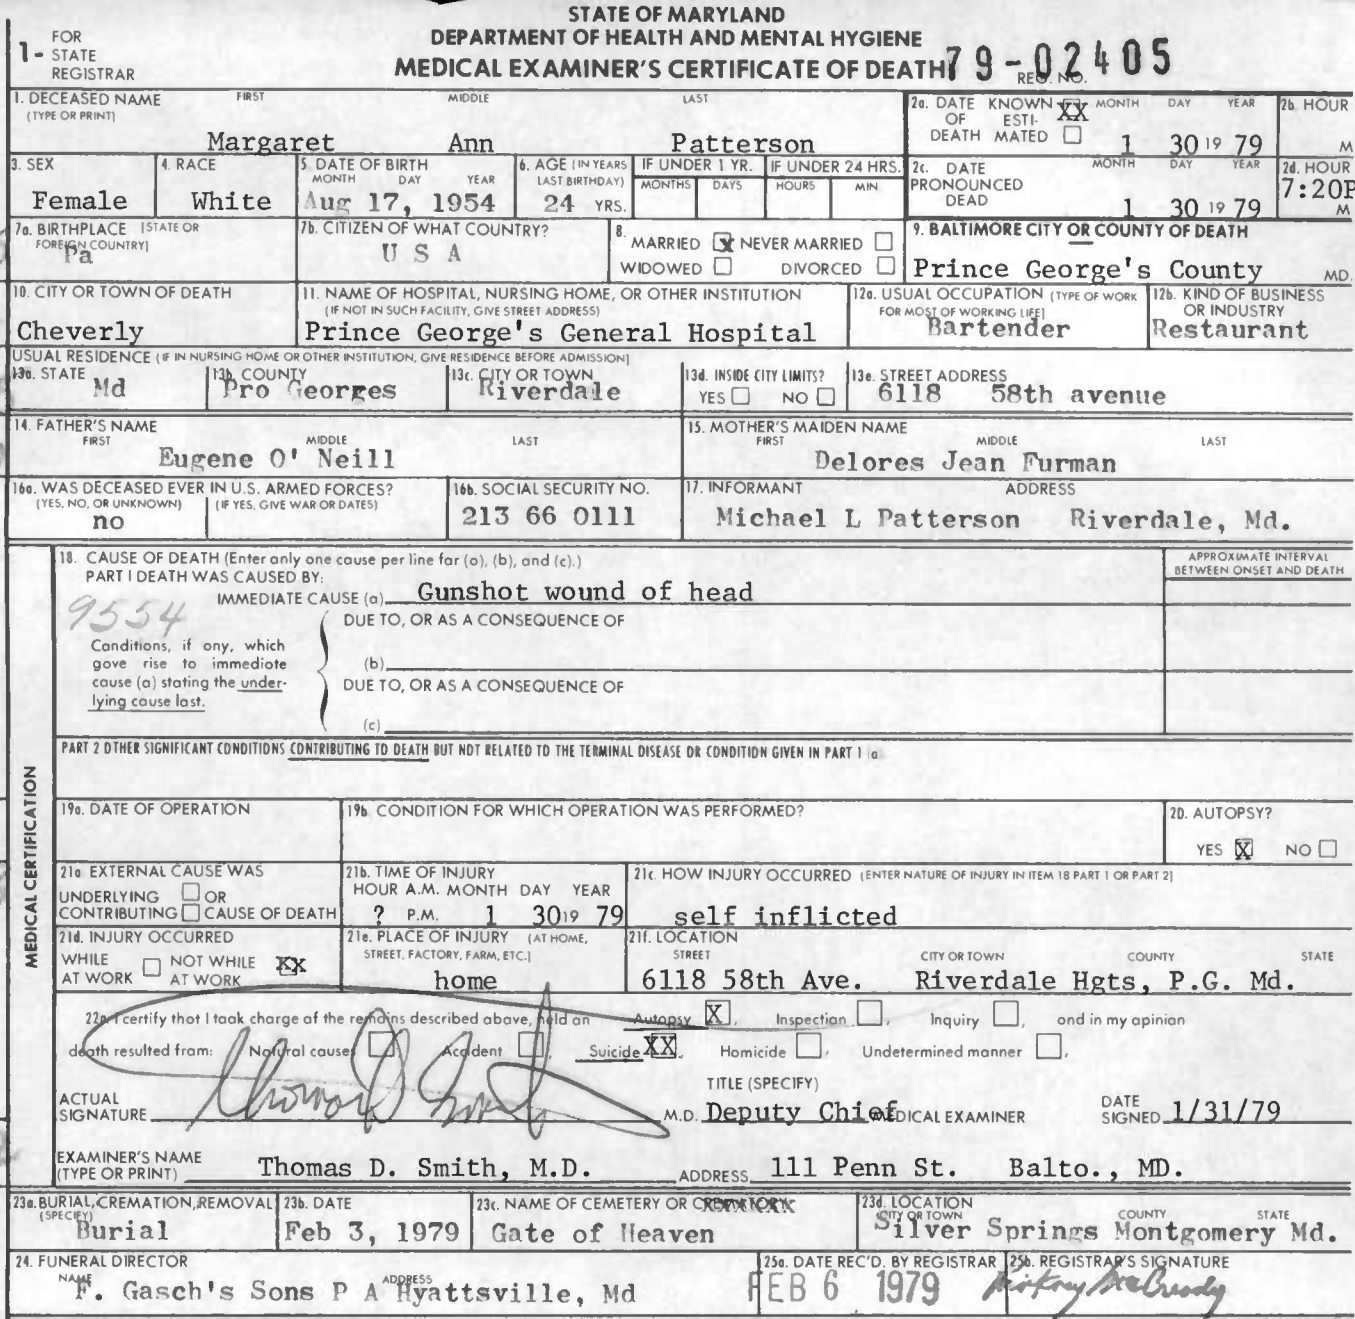 STATE OF MARYLAND
DEPARTMENT OF HEALTH AND MENTAL HYGIENE
MEDICAL EXAMINER'S CERTIFICATE OF DEATH
79-02405
REG. NO.
1- FOR STATE REGISTRAR
1. DECEASED NAME FIRST MIDDLE LAST
(TYPE OR PRINT)
Margaret Ann Patterson
2a. DATE OF DEATH KNOWN XX ESTIMATED MONTH DAY YEAR
1 30 19 79
2b. HOUR
M
3. SEX
Female
4. RACE
White
5. DATE OF BIRTH
MONTH DAY YEAR
Aug 17, 1954
6. AGE (IN YEARS LAST BIRTHDAY)
24 YRS.
IF UNDER 1 YR.
MONTHS DAYS
IF UNDER 24 HRS.
HOURS MIN
2c. DATE PRONOUNCED DEAD MONTH DAY YEAR
1 30 19 79
2d. HOUR
7:20P
M
7a. BIRTHPLACE (STATE OR FOREIGN COUNTRY)
Pa
7b. CITIZEN OF WHAT COUNTRY?
U S A
8. MARRIED X NEVER MARRIED
WIDOWED DIVORCED
9. BALTIMORE CITY OR COUNTY OF DEATH
Prince George's County MD.
10. CITY OR TOWN OF DEATH
Cheverly
11. NAME OF HOSPITAL, NURSING HOME, OR OTHER INSTITUTION
(IF NOT IN SUCH FACILITY, GIVE STREET ADDRESS)
Prince George's General Hospital
12a. USUAL OCCUPATION (TYPE OF WORK FOR MOST OF WORKING LIFE)
Bartender
12b. KIND OF BUSINESS OR INDUSTRY
Restaurant
USUAL RESIDENCE (IF IN NURSING HOME OR OTHER INSTITUTION, GIVE RESIDENCE BEFORE ADMISSION)
13a. STATE
Md
13b. COUNTY
Pro Georges
13c. CITY OR TOWN
Riverdale
13d. INSIDE CITY LIMITS?
YES NO
13e. STREET ADDRESS
6118 58th avenue
14. FATHER'S NAME
FIRST MIDDLE LAST
Eugene O' Neill
15. MOTHER'S MAIDEN NAME
FIRST MIDDLE LAST
Delores Jean Furman
16a. WAS DECEASED EVER IN U.S. ARMED FORCES?
(YES, NO, OR UNKNOWN) (IF YES, GIVE WAR OR DATES)
no
16b. SOCIAL SECURITY NO.
213 66 0111
17. INFORMANT ADDRESS
Michael L Patterson Riverdale, Md.
MEDICAL CERTIFICATION
18. CAUSE OF DEATH (Enter only one cause per line for (a), (b), and (c).)
PART I DEATH WAS CAUSED BY:
IMMEDIATE CAUSE (a) Gunshot wound of head
9554
DUE TO, OR AS A CONSEQUENCE OF
Conditions, if any, which
gave rise to immediate
cause (a) stating the under-
lying cause last.
(b)
DUE TO, OR AS A CONSEQUENCE OF
(c)
APPROXIMATE INTERVAL
BETWEEN ONSET AND DEATH
PART 2 OTHER SIGNIFICANT CONDITIONS CONTRIBUTING TO DEATH BUT NOT RELATED TO THE TERMINAL DISEASE OR CONDITION GIVEN IN PART 1 (a
19a. DATE OF OPERATION
19b. CONDITION FOR WHICH OPERATION WAS PERFORMED?
20. AUTOPSY?
YES X NO
21a EXTERNAL CAUSE WAS
UNDERLYING OR
CONTRIBUTING CAUSE OF DEATH
21b. TIME OF INJURY
HOUR A.M. MONTH DAY YEAR
? P.M. 1 30 19 79
21c. HOW INJURY OCCURRED (ENTER NATURE OF INJURY IN ITEM 18 PART 1 OR PART 2)
self inflicted
21d. INJURY OCCURRED
WHILE AT WORK NOT WHILE AT WORK XX
21e. PLACE OF INJURY (AT HOME, STREET, FACTORY, FARM, ETC.)
home
21f. LOCATION
STREET CITY OR TOWN COUNTY STATE
6118 58th Ave. Riverdale Hgts, P.G. Md.
22a. I certify that I took charge of the remains described above, held an Autopsy X, Inspection, Inquiry, and in my opinion
death resulted from: Natural causes, Accident, Suicide XX, Homicide, Undetermined manner,
ACTUAL SIGNATURE Thomas D. Smith M.D.
TITLE (SPECIFY)
Deputy Chief MEDICAL EXAMINER
DATE SIGNED 1/31/79
EXAMINER'S NAME
(TYPE OR PRINT) Thomas D. Smith, M.D. ADDRESS 111 Penn St. Balto., MD.
23a. BURIAL, CREMATION, REMOVAL
(SPECIFY)
Burial
23b. DATE
Feb 3, 1979
23c. NAME OF CEMETERY OR CREMATORY
Gate of Heaven
23d. LOCATION
CITY OR TOWN COUNTY STATE
Silver Springs Montgomery Md.
24. FUNERAL DIRECTOR
NAME ADDRESS
F. Gasch's Sons P A Hyattsville, Md
25a. DATE REC'D. BY REGISTRAR
FEB 6 1979
25b. REGISTRAR'S SIGNATURE